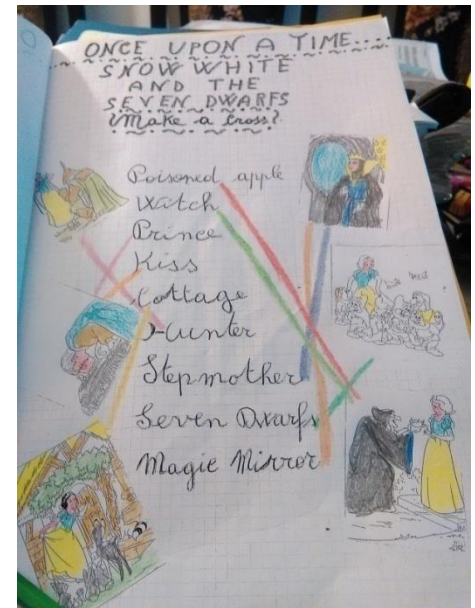 ONCE UPON A TIME....
SNOW WHITE
AND THE
SEVEN DWARFS
Make a cross!
Poisoned apple
Watch
Prince
Kiss
Cottage
Hunter
Stepmother
Seven Dwarfs
Magic Mirror